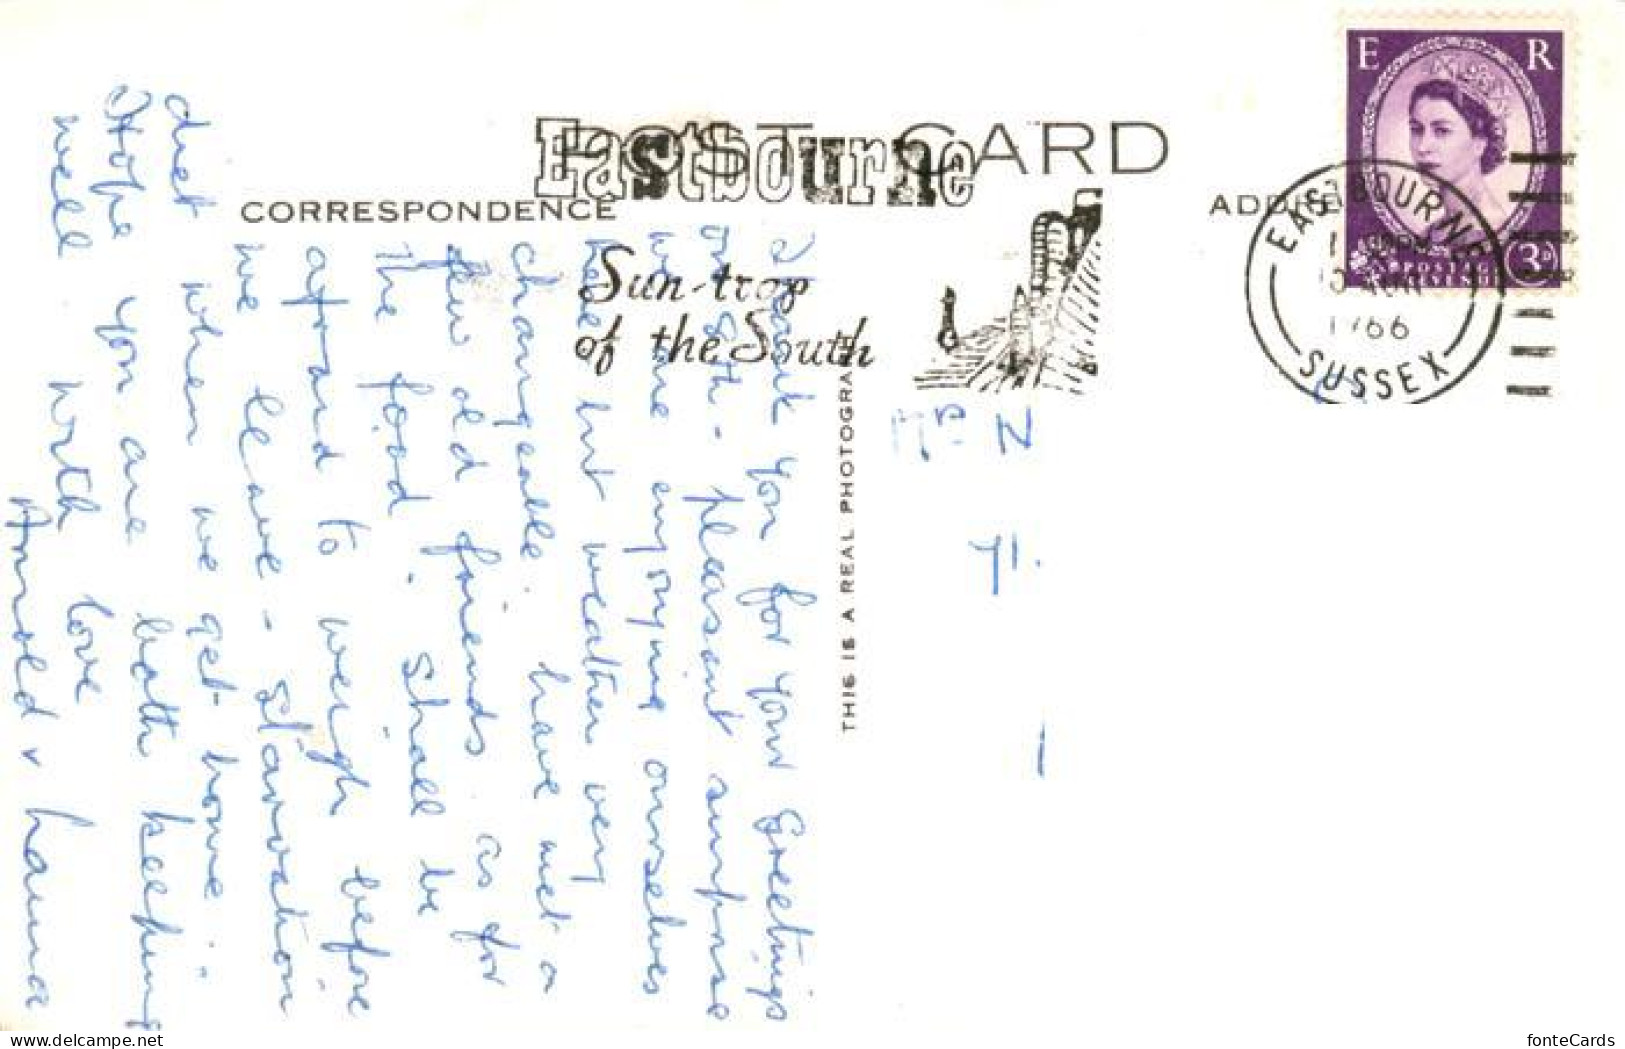 POST CARD
CORRESPONDENCE
ADDRE
Eastbourne
Sun-trap
of the South
E R
POSTAGE
REVENUE
3D
EASTBOURNE
1966
SUSSEX
THIS IS A REAL PHOTOGRA
Thank you for your Greetings
on 8th - pleasant surprise
we are enjoying ourselves
here but weather very
changeable. have met a
few old friends as for
the food. Shall be
afraid to weigh before
we leave - starvation
diet when we get home.
Hope you are both keeping
well with love
Arnold &
fonteCards